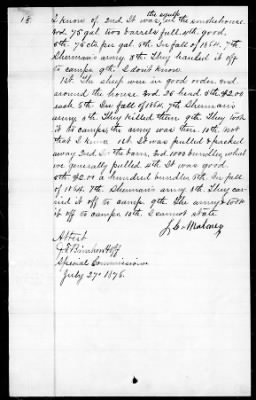 the syrup
13. I know of 2nd It was in the smokehouse.
3rd. 75 gal. two barrels full. 4th. good.
5th. 75 cts per gal. 6th. In fall of 1864. 7th
Sherman's army. 8th. They hauled it off
to camps 9th. I dont know.
1st. The sheep were in good order. 2nd
around the house 3rd. 26 head. 5th. $2.00
each 6th. In fall of 1864. 7th Sherman's
army. 8th They killed them 9th. They took
it to camps, the army was there 10th. not
that I know. 1st. It was pulled & packed
away 2nd In the barn, 3rd. 1000 bundles, what
we generally pulled. 4th. It was good.
5th. $2.00 a hundred bundles. 6th. In fall
of 1864. 7th. Sherman's army 8th. They car-
ried it off to camps 9th. The army took
it off to camps 10th. I cannot state.
Mahoney
Attest
Special Commissioner
July 27" 1876.